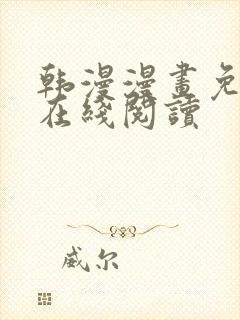 韩漫漫畫免
在綫閱讀
威尔